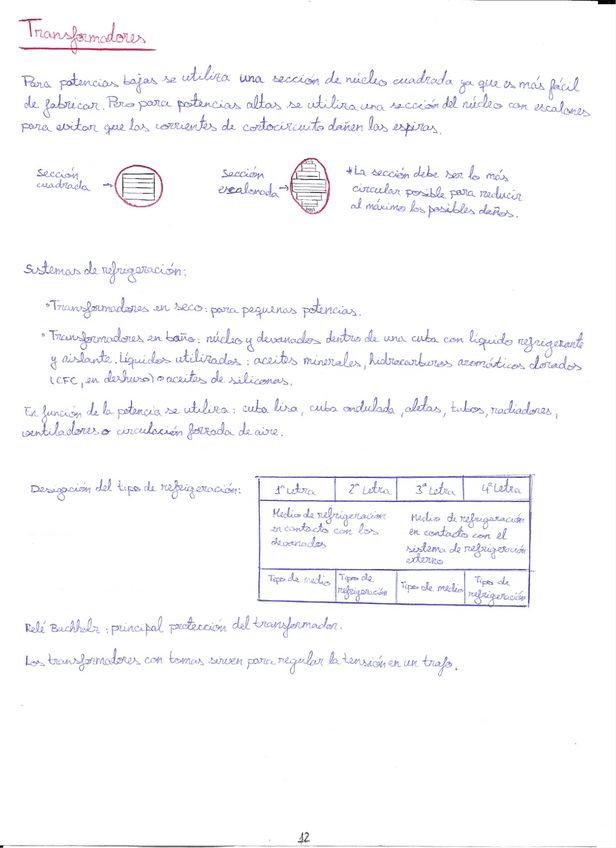 Transformadores
Para potencias bajas se utiliza una sección de núcleo cuadrada ya que es más fácil
de fabricar. Pero para potencias altas se utiliza una sección del núcleo con escalones
para evitar que las corrientes de cortocircuito dañen las espiras.
Sección
cuadrada
Sección
escalonada
*La sección debe ser lo más
circular posible para reducir
al máximo los posibles daños.
Sistemas de refrigeración:
*Transformadores en seco: para pequeñas potencias.
*Transformadores en baño: núcleo y devanados dentro de una cuba con líquido refrigerante
y aislante. Líquidos utilizados: aceites minerales, hidrocarburos aromáticos clorados
(CFC, en deshuso) o aceites de siliconas.
En función de la potencia se utiliza: cuba lisa, cuba ondulada, aletas, tubos, radiadores,
ventiladores o circulación forzada de aire.
Desigación del tipo de refrigeración:
1ª Letra 2ª Letra 3ª Letra 4ª Letra
Medio de refrigeración
en contacto con los
devanados
Medio de refrigeración
en contacto con el
sistema de refrigeración
externo
Tipo de medio
Tipo de
refrigeración
Tipo de medio
Tipo de
refrigeración
Relé Buchholz: principal protección del transformador.
Los transformadores con tomas sirven para regular la tensión en un trafo.
12